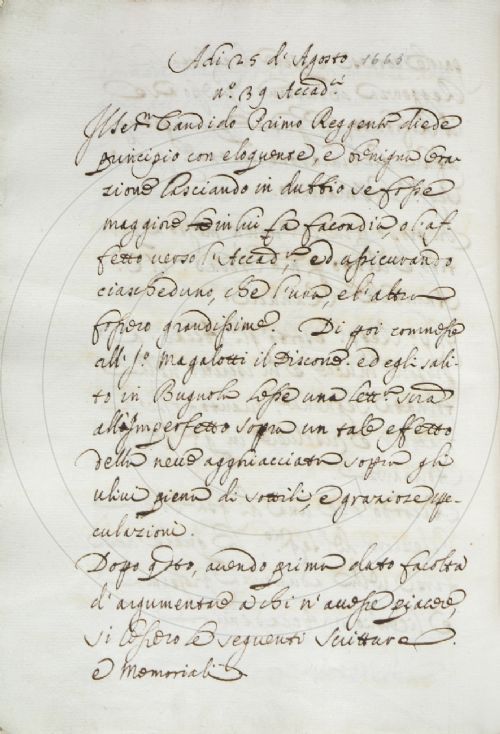 Adi 25 d'Agosto 1663
n.º 39 Accad.ci
Il Ser.mo Candido Primo Reggente diede
principio con eloquente, e benigna ora-
zione lasciando in dubbio se fosse
maggiore in lui la facondia, o l'af-
fetto verso l'Accad.a ed assicurando
ciascheduno, che l'una, e l'altra
fossero grandissime. Di poi commesse
all' S.r Magalotti il Discorse ed egli sali-
to in Bugnola lesse una lett.a
all'Imperfetto sopra un tale effetto
della neve agghiacciata sopra gli
ulivi piena di sottili, e graziose spe-
culazioni.
Dopo q.sto, avendo prima dato facoltà
d'argumentare a chi n'avesse piacere
si lessero le seguenti scritture
e Memoriali